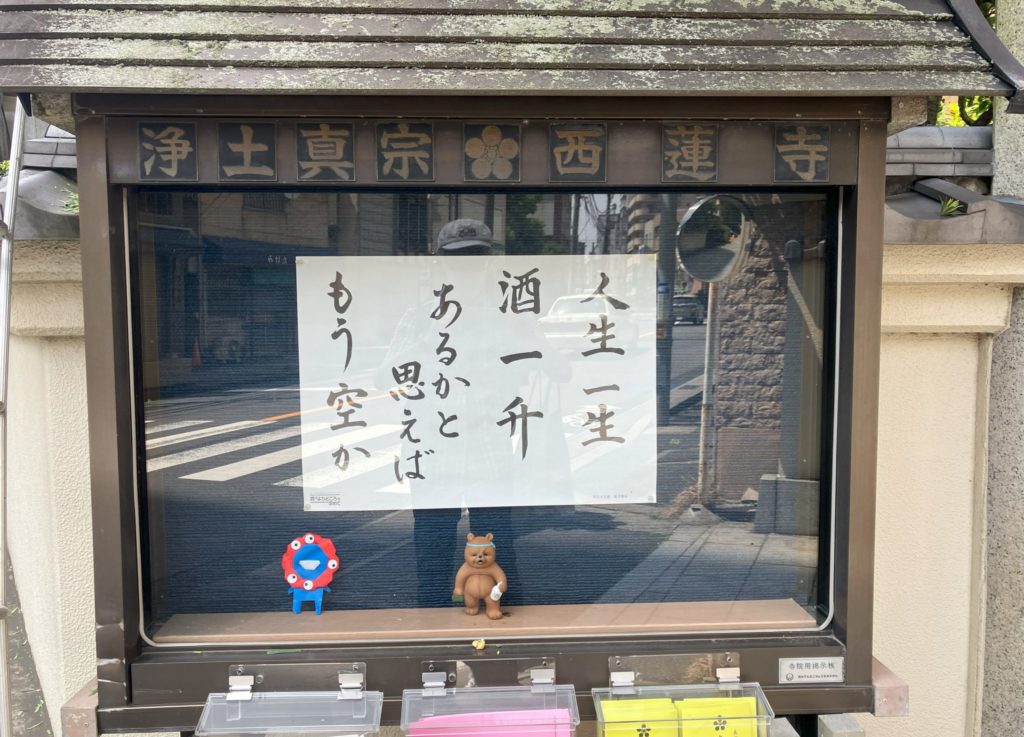 浄土真宗 西蓮寺
人生一生
酒一升
あるかと
思えば
もう空か
寺院用掲示板